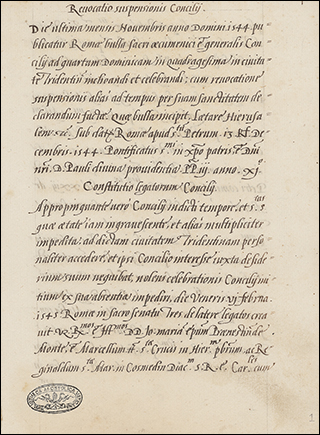 Revocatio suspensionis Concilij.
Die ultima mensis Novembris anno Domini 1544 pu-
blicatur Romæ bulla sacri œcumenici et generalis Con
cilij ad quartam Dominicam in quadragesima in civita
te Tridentin inchoandi et celebrandi: cum revocatione
suspensionis alias ad tempus per suam sanctitatem de
clarandim factæ. Quæ bulla incipit, Lætare Hierusa
lem &c. sub dat. Romæ apud s. Petrum. 13 Kl. De
cembris. 1544. Pontificatus s.mi in Xpo patris et Dni
nri. D. Pauli divina providentia PP. iij. anno. XI.o
Constitutio legatorum Concilij.
Appropinquante vero Concilij indicti tempore, et s. s.tas
quæ ætate iam ingravescente, et alias multipliciter
impedita, ad dictam civitatem Tridentinam perso
naliter accedere, et ipsi Concilio interesse iuxta desi-
derium suum nequibat, nolens celebrationis Concilij ini
tium ex sua absentia impediri, die Veneris vj februa.
1545 Romæ in sacro senatu Tres de latere legatos crea
vit R.mos et Ill.mos DD. Jo. mariã epũm Prænestin. de
Monte, et Marcellum tt. s.tæ Crucis in Hier.m pbrum. ac Re
ginaldum s.tæ Mar. in Cosmedin Diac. S. R. E. Car.les cum